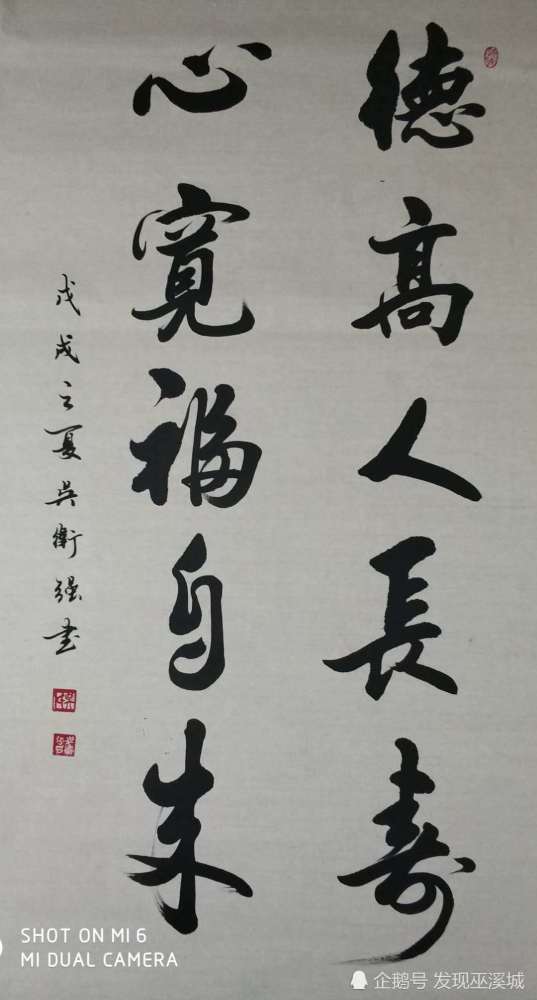 德高人長壽
心寬福自来
戊戌之夏吳衛强书
SHOT ON MI 6
MI DUAL CAMERA
企鹅号 发现巫溪城